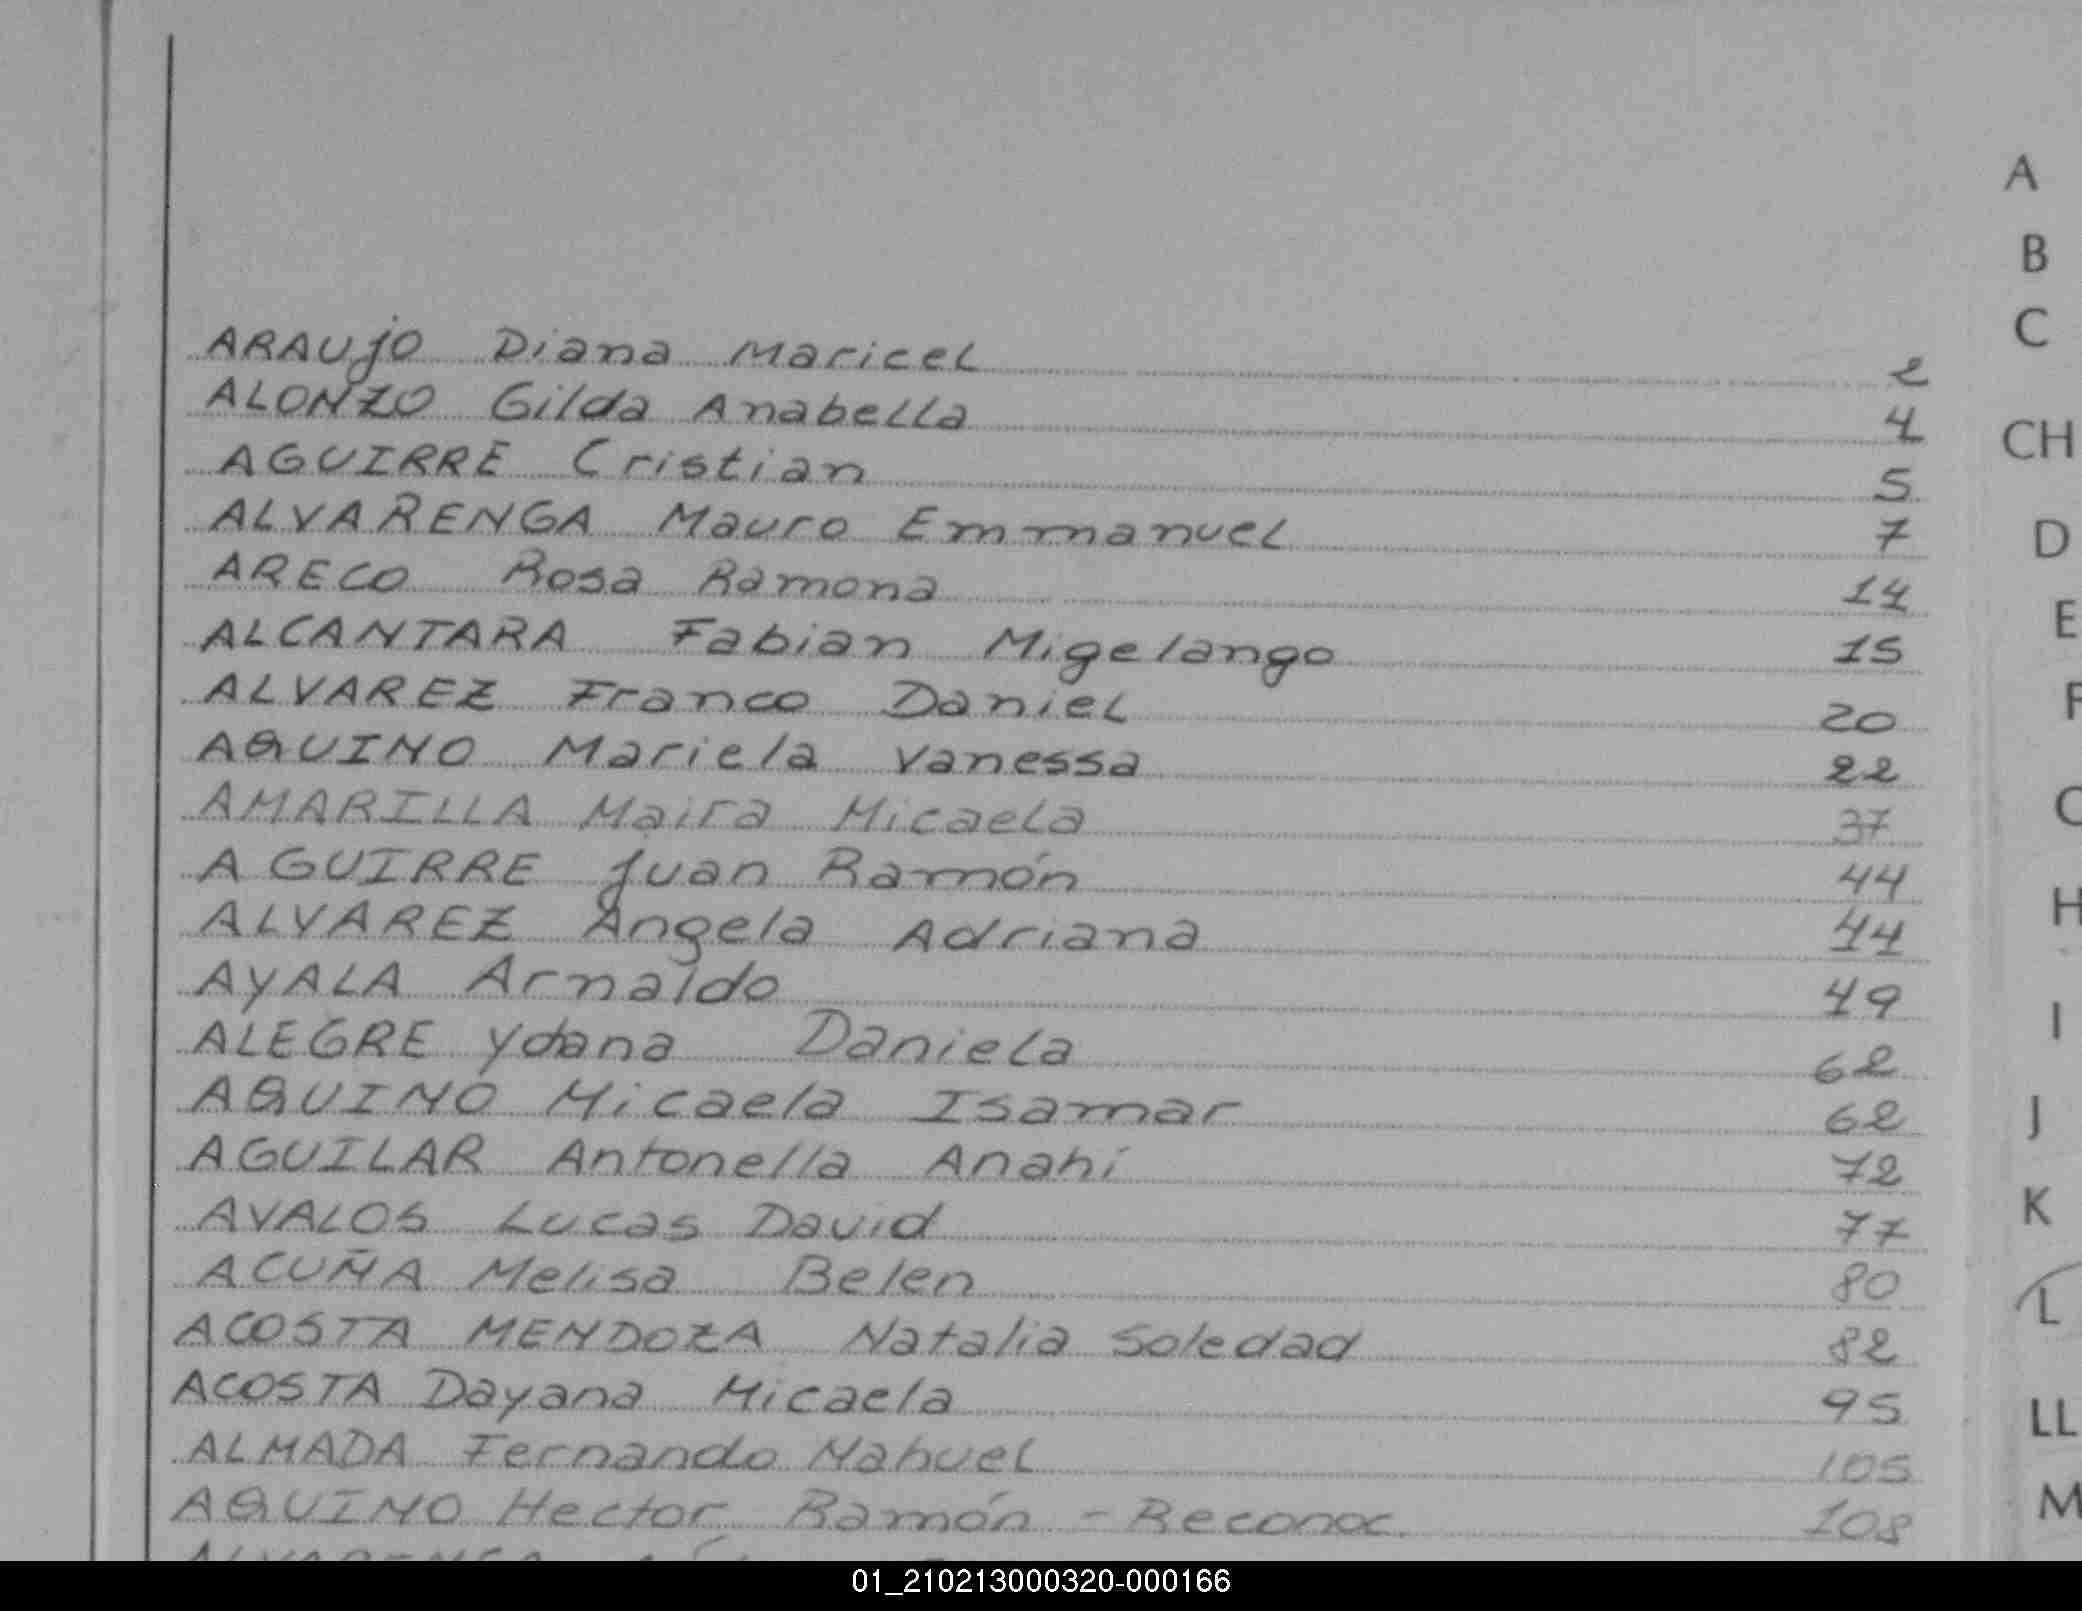 ARAUJO Diana Maricel 2
ALONZO Gilda Anabella 4
AGUIRRE Cristian 5
ALVARENGA Mauro Emmanuel 7
ARECO Rosa Ramona 14
ALCANTARA Fabian Migelango 15
ALVAREZ Franco Daniel 20
AQUINO Mariela Vanessa 22
AMARILLA Maira Micaela 37
AGUIRRE Juan Ramón 44
ALVAREZ Angela Adriana 44
AYALA Arnaldo 49
ALEGRE Daniela 62
AQUINO Micaela Isamar 62
AGUILAR Antonella Anahí 72
AVALOS Lucas David 77
ACUÑA Melisa Belen 80
ACOSTA MENDOZA Natalia Soledad 82
ACOSTA Dayana Micaela 95
ALMADA Fernando Nahuel 105
AQUINO Hector Ramón - Reconoc. 108
A
B
C
CH
D
E
F
H
I
J
K
L
LL
M
01_210213000320-000166